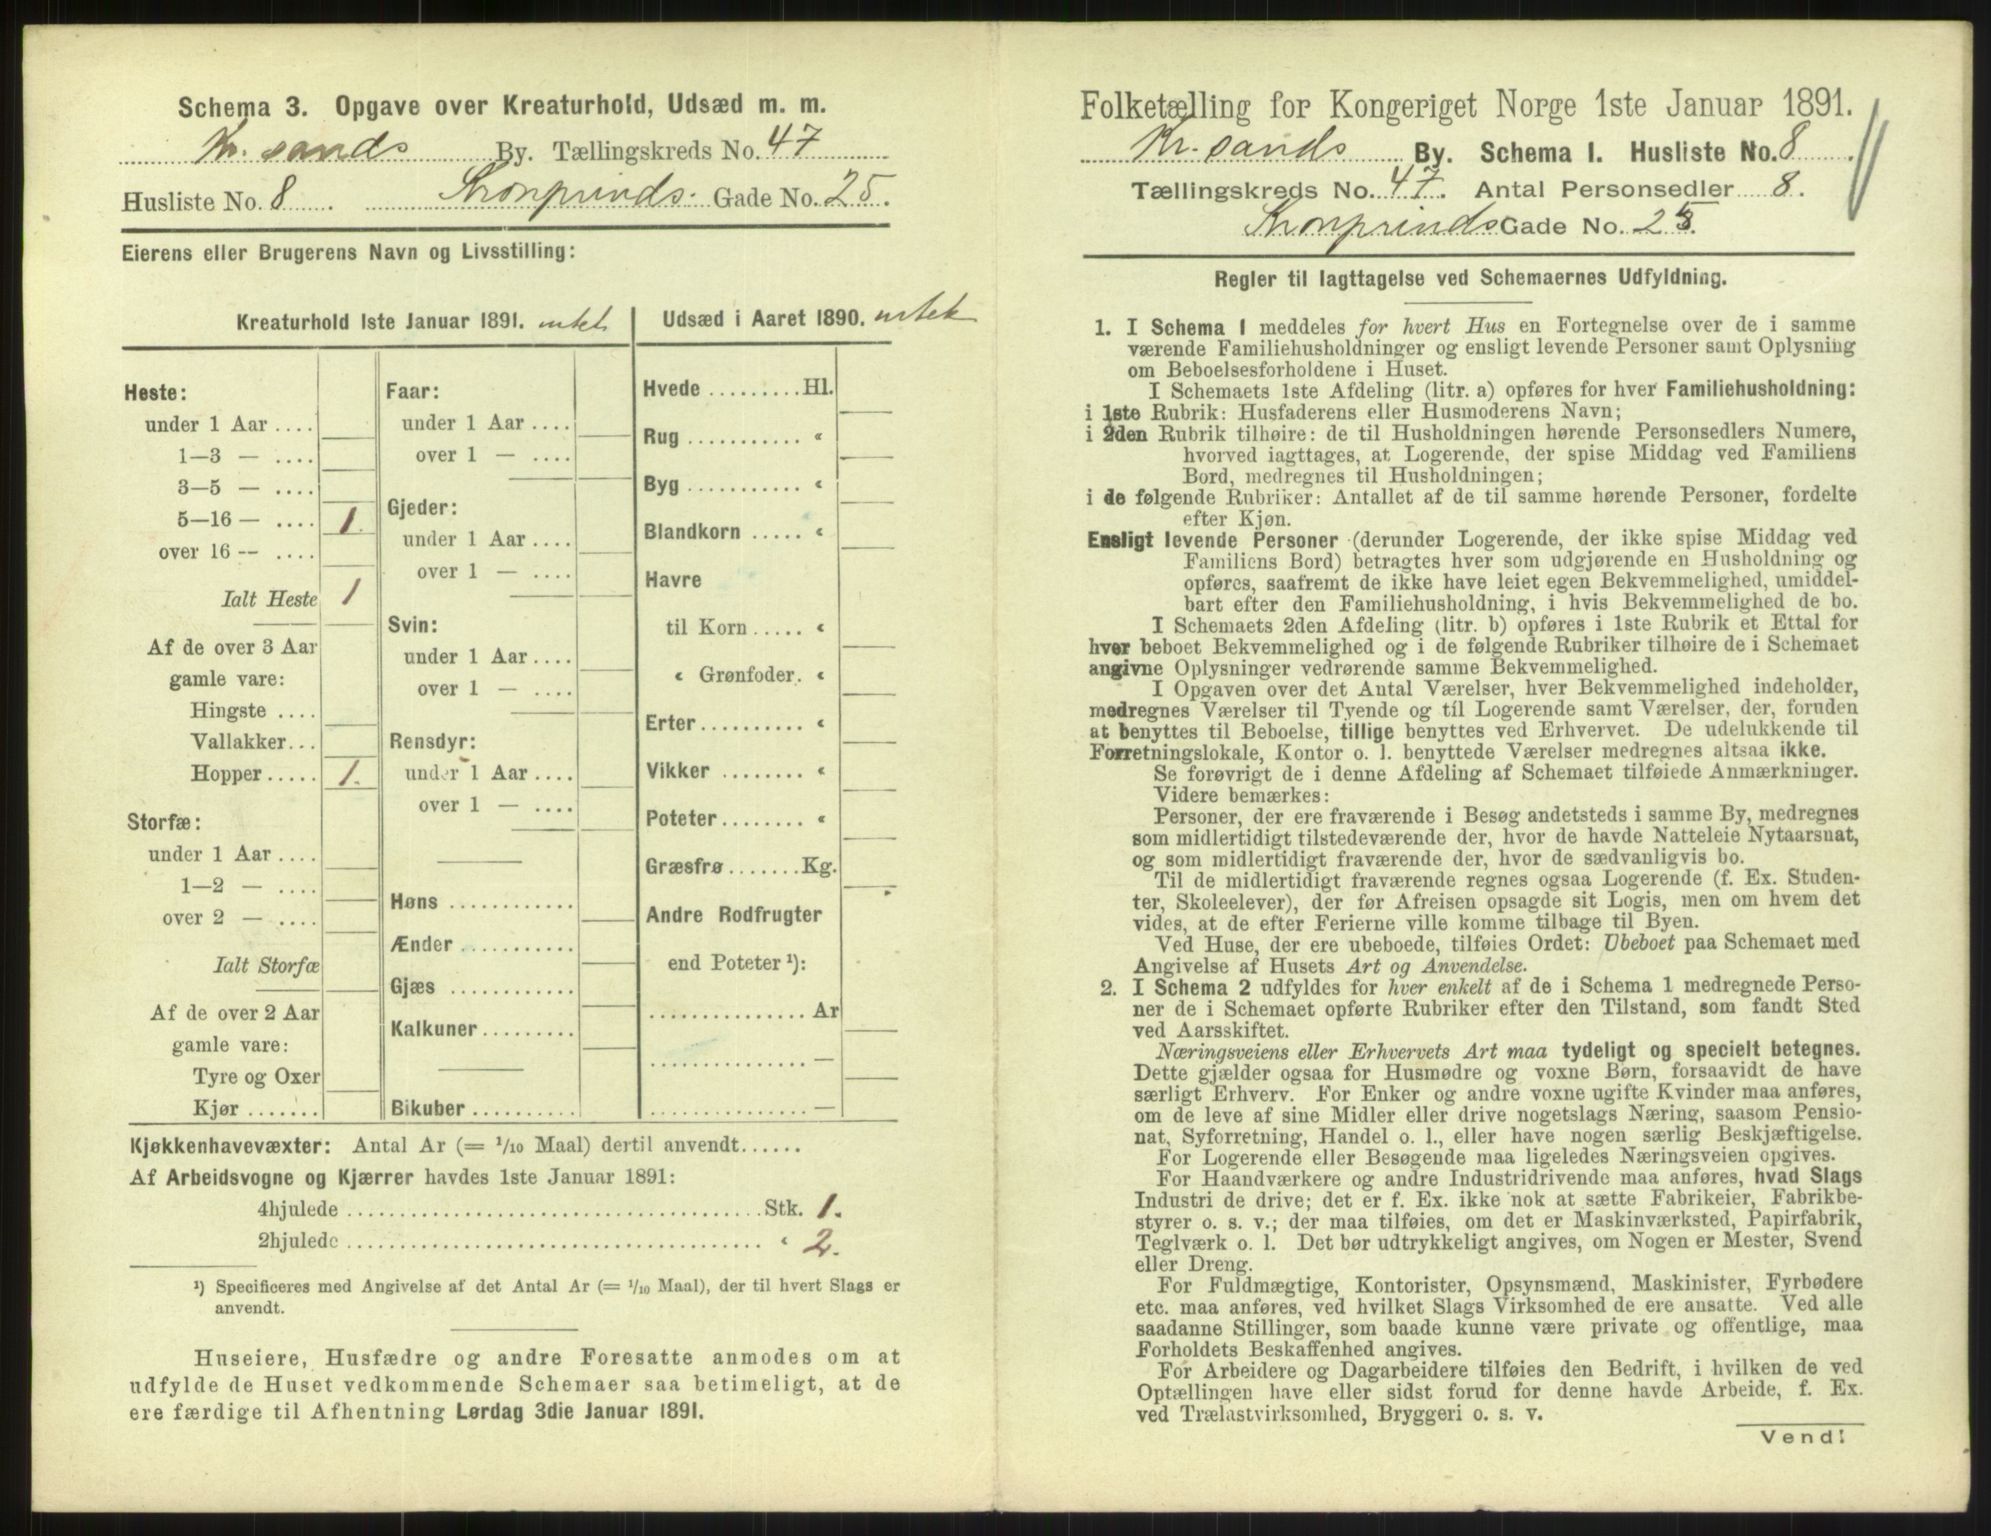 Schema 3. Opgave over Kreaturhold, Udsæd m. m.
Kr. sands By. Tællingskreds No. 47
Husliste No. 8 . Kronprinds. Gade No. 25.
Eierens eller Brugerens Navn og Livsstilling:
Kreaturhold 1ste Januar 1891. intet
Heste:
under 1 Aar ....
1—3 — ....
3—5 — ....
5—16 — .... 1.
over 16 -- ....
Ialt Heste 1
Af de over 3 Aar
gamle vare:
Hingste ....
Vallakker...
Hopper ..... 1.
Storfæ:
under 1 Aar ....
1—2 — ....
over 2 — ....
Ialt Storfæ
Af de over 2 Aar
gamle vare:
Tyre og Oxer
Kjør .......
Faar:
under 1 Aar ....
over 1 — ....
Gjeder:
under 1 Aar ....
over 1 — ....
Svin:
under 1 Aar ....
over 1 — ....
Rensdyr:
under 1 Aar ....
over 1 — ....
Høns ............
Ænder ............
Gjæs ............
Kalkuner.........
Bikuber ..........
Udsæd i Aaret 1890. intet
Hvede .........Hl.
Rug ........... “
Byg ........... “
Blandkorn ..... “
Havre
til Korn ..... “
“ Grønfoder. “
Erter.......... “
Vikker ........ “
Poteter........ “
Græsfrø .......Kg.
Andre Rodfrugter
end Poteter ¹):
............... Ar
............... —
............... —
Kjøkkenhavevæxter: Antal Ar (= 1/10 Maal) dertil anvendt......
Af Arbeidsvogne og Kjærrer havdes 1ste Januar 1891:
4hjulede ......................................Stk. 1.
2hjulede ...................................... “ 2.
¹) Specificeres med Angivelse af det Antal Ar (= 1/10 Maal), der til hvert Slags er
anvendt.
Huseiere, Husfædre og andre Foresatte anmodes om at
udfylde de Huset vedkommende Schemaer saa betimeligt, at de
ere færdige til Afhentning Lørdag 3die Januar 1891.
Folketælling for Kongeriget Norge 1ste Januar 1891.
Kr. sands By. Schema 1. Husliste No. 8 .
Tællingskreds No. 47. Antal Personsedler 8.
Kronprinds Gade No. 25.
Regler til Iagttagelse ved Schemaernes Udfyldning.
1. I Schema 1 meddeles for hvert Hus en Fortegnelse over de i samme
værende Familiehusholdninger og ensligt levende Personer samt Oplysning
om Beboelsesforholdene i Huset.
I Schemaets 1ste Afdeling (litr. a) opføres for hver Familiehusholdning:
i 1ste Rubrik: Husfaderens eller Husmoderens Navn;
i 2den Rubrik tilhøire: de til Husholdningen hørende Personsedlers Numere,
hvorved iagttages, at Logerende, der spise Middag ved Familiens
Bord, medregnes til Husholdningen;
i de følgende Rubriker: Antallet af de til samme hørende Personer, fordelte
efter Kjøn.
Ensligt levende Personer (derunder Logerende, der ikke spise Middag ved
Familiens Bord) betragtes hver som udgjørende en Husholdning og
opføres, saafremt de ikke have leiet egen Bekvemmelighed, umiddel-
bart efter den Familiehusholdning, i hvis Bekvemmelighed de bo.
I Schemaets 2den Afdeling (litr. b) opføres i 1ste Rubrik et Ettal for
hver beboet Bekvemmelighed og i de følgende Rubriker tilhøire de i Schemaet
angivne Oplysninger vedrørende samme Bekvemmelighed.
I Opgaven over det Antal Værelser, hver Bekvemmelighed indeholder,
medregnes Værelser til Tyende og til Logerende samt Værelser, der, foruden
at benyttes til Beboelse, tillige benyttes ved Erhvervet. De udelukkende til
Forretningslokale, Kontor o. l. benyttede Værelser medregnes altsaa ikke.
Se forøvrigt de i denne Afdeling af Schemaet tilføiede Anmærkninger.
Videre bemærkes:
Personer, der ere fraværende i Besøg andetsteds i samme By, medregnes
som midlertidigt tilstedeværende der, hvor de havde Natteleie Nytaarsnat,
og som midlertidigt fraværende der, hvor de sædvanligvis bo.
Til de midlertidigt fraværende regnes ogsaa Logerende (f. Ex. Studen-
ter, Skoleelever), der før Afreisen opsagde sit Logis, men om hvem det
vides, at de efter Ferierne ville komme tilbage til Byen.
Ved Huse, der ere ubeboede, tilføies Ordet: Ubeboet paa Schemaet med
Angivelse af Husets Art og Anvendelse.
2. I Schema 2 udfyldes for hver enkelt af de i Schema 1 medregnede Perso-
ner de i Schemaet opførte Rubriker efter den Tilstand, som fandt Sted
ved Aarsskiftet.
Næringsveiens eller Erhvervets Art maa tydeligt og specielt betegnes.
Dette gjælder ogsaa for Husmødre og voxne Børn, forsaavidt de have
særligt Erhverv. For Enker og andre voxne ugifte Kvinder maa anføres,
om de leve af sine Midler eller drive nogetslags Næring, saasom Pensio-
nat, Syforretning, Handel o. l., eller have nogen særlig Beskjæftigelse.
For Logerende eller Besøgende maa ligeledes Næringsveien opgives.
For Haandværkere og andre Industridrivende maa anføres, hvad Slags
Industri de drive; det er f. Ex. ikke nok at sætte Fabrikeier, Fabrikbe-
styrer o. s. v.; der maa tilføies, om det er Maskinværksted, Papirfabrik,
Teglværk o. l. Det bør udtrykkeligt angives, om Nogen er Mester, Svend
eller Dreng.
For Fuldmægtige, Kontorister, Opsynsmænd, Maskinister, Fyrbødere
etc. maa anføres, ved hvilket Slags Virksomhed de ere ansatte. Ved alle
saadanne Stillinger, som baade kunne være private og offentlige, maa
Forholdets Beskaffenhed angives.
For Arbeidere og Dagarbeidere tilføies den Bedrift, i hvilken de ved
Optællingen have eller sidst forud for denne havde Arbeide, f. Ex.
ved Trælastvirksomhed, Bryggeri o. s. v.
Vend!